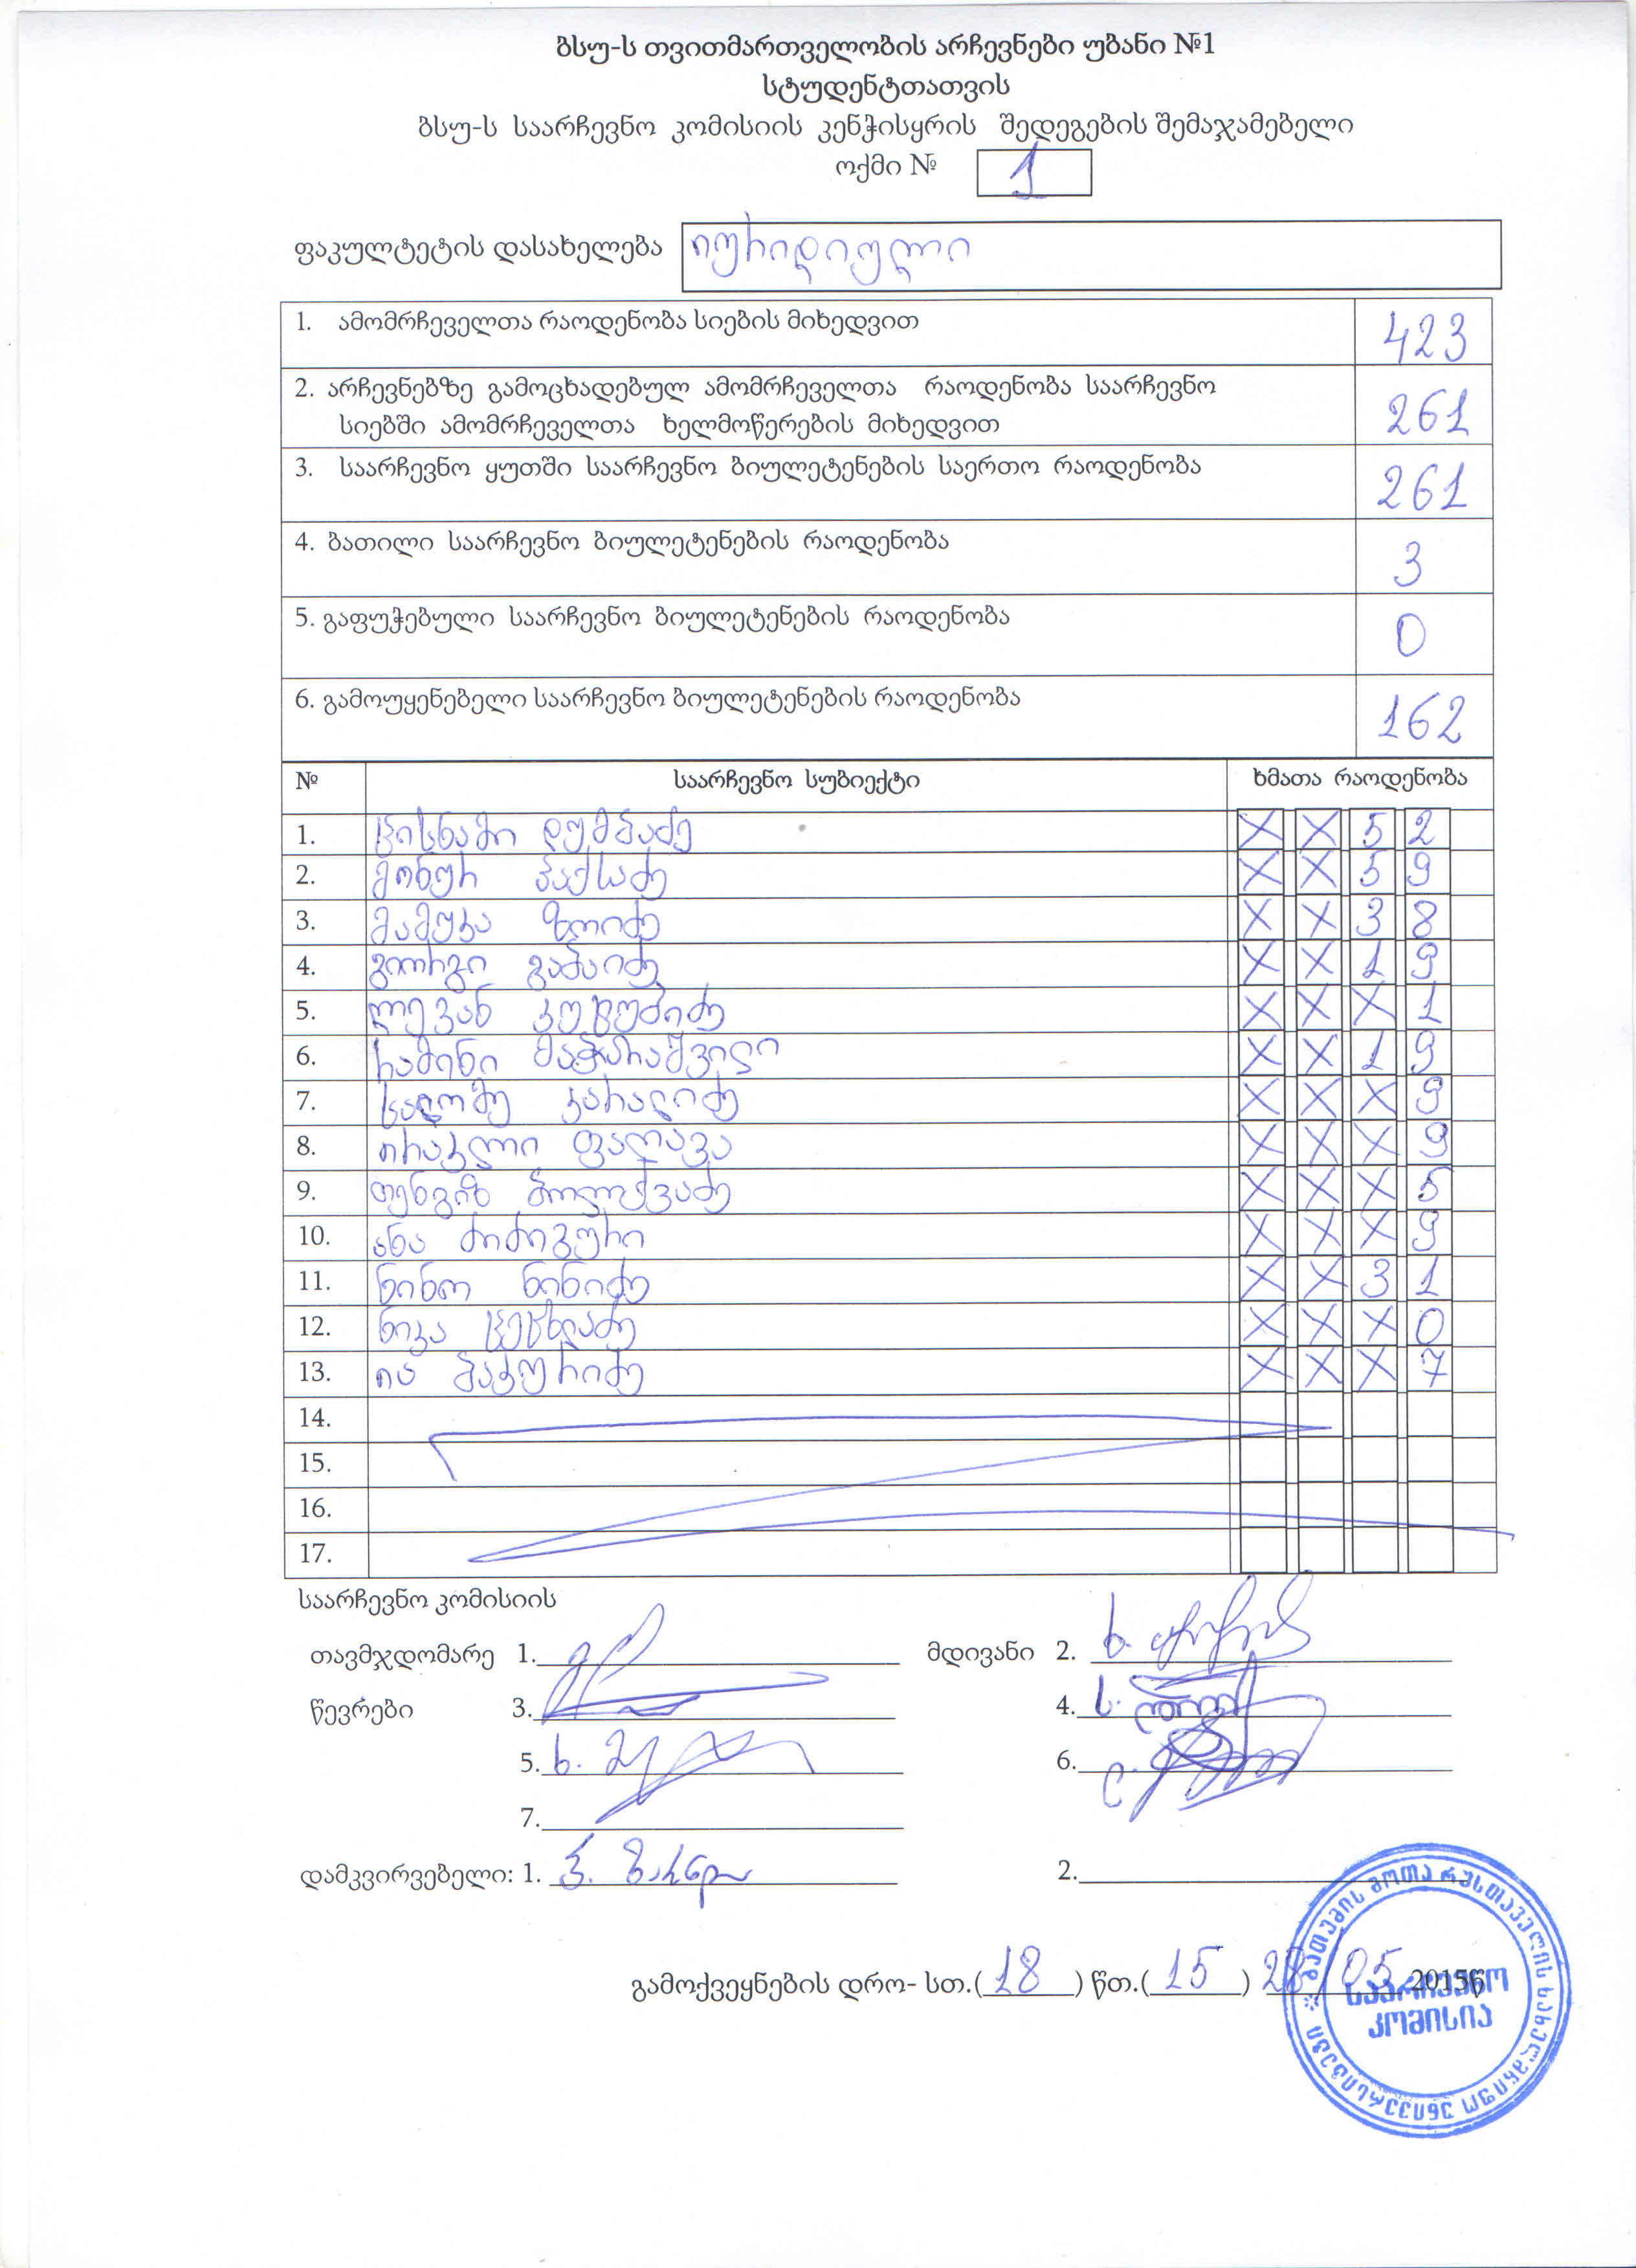 ბსუ-ს თვითმართველობის არჩევნები უბანი №1
სტუდენტთათვის
ბსუ-ს საარჩევნო კომისიის კენჭისყრის შედეგების შემაჯამებელი
ოქმი № 1
ფაკულტეტის დასახელება იურიდიული
1. ამომრჩეველთა რაოდენობა სიების მიხედვით 423
2. არჩევნებზე გამოცხადებულ ამომრჩეველთა რაოდენობა საარჩევნო
სიებში ამომრჩეველთა ხელმოწერების მიხედვით 261
3. საარჩევნო ყუთში საარჩევნო ბიულეტენების საერთო რაოდენობა 261
4. ბათილი საარჩევნო ბიულეტენების რაოდენობა 3
5. გაფუჭებული საარჩევნო ბიულეტენების რაოდენობა 0
6. გამოუყენებელი საარჩევნო ბიულეტენების რაოდენობა 162
№ საარჩევნო სუბიექტი ხმათა რაოდენობა
1. დუმბაძე X X 5 2
2. მონურ პაქსაძე X X 5 9
3. მამუკა ზოიძე X X 3 8
4. გიორგი გაბაიძე X X 1 9
5. ლევან X X X 1
6. რამინი მაჭარაშვილი X X 1 9
7. სალომე კახალიძე X X X 9
8. ირაკლი ფაღავა X X X 9
9. თენგიზ ბოლქვაძე X X X 5
10. ანა ძიძიგური X X X 9
11. ნინო ნინიძე X X 3 1
12. ნიკა ცეცხლაძე X X X 0
13. ია შაკურიძე X X X 7
14.
15.
16.
17.
საარჩევნო კომისიის
თავმჯდომარე 1. მდივანი 2.
წევრები 3. 4.
5. 6.
7.
დამკვირვებელი: 1. 2.
გამოქვეყნების დრო- სთ.(18) წთ.(15) 28/05 2015წ
ბათუმის შოთა რუსთაველის სახელმწიფო უნივერსიტეტი
საარჩევნო
კომისია